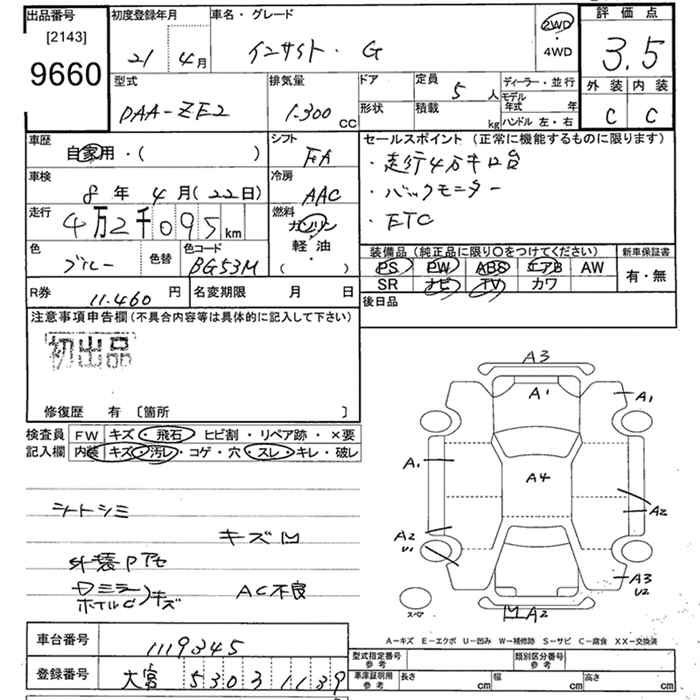 出品番号
[2143]
9660
初度登録年月
21 4月
車名・グレード
インサイト・G
2WD
・
4WD
評価点
3.5
外装 内装
C C
型式
DAA-ZE2
排気量
1.300 CC
ドア
形状
定員 5人
積載 kg
ディーラー・並行
モデル年式 年
ハンドル 左・右
車歴
自家用・( )
シフト
FA
車検
8年 4月(22日)
冷房
AAC
走行
4万2千095 km
燃料
ガソリン
軽・油
( )
色
ブルー
色替
色コード
BG53M
セールスポイント(正常に機能するものに限ります)
・走行4万キロ台
・バックモニター
・ETC
装備品(純正品に限り○をつけてください)
PS PW ABS エアB AW
SR ナビ TV カワ
新車保証書
有・無
R券 11.460円
名変期限 月 日
後日品
注意事項申告欄(不具合内容等は具体的に記入して下さい)
初出品
修復歴 有 [箇所 ]
検査員
記入欄
FW キズ・飛石・ヒビ割・リペア跡・×要
内装 キズ・汚レ・コゲ・穴・スレ・キレ・破レ
シートシミ
キズ凹
外装Pアセ
ホイルC キズ
AC不良
A3
A1
A1
A1
A4
A2
A2
U1
A3
U2
スペア
凹A2
A-キズ E-エクボ U-凹み W-補修跡 S-サビ C-腐食 XX-交換済
車台番号
1119345
登録番号
大宮 530 3 1139
型式指定番号
参考
類別区分番号
参考
車庫証明用
参考
長さ cm
幅 cm
高さ cm